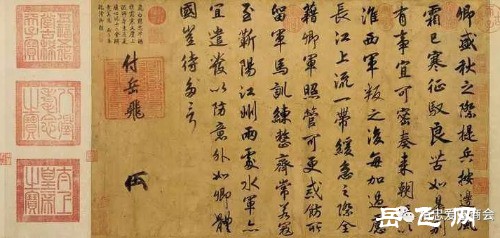 卿盛秋之際提兵按邊風
霜已寒征馭良苦如是別
有事宜可密奏來朝廷以
淮西軍叛之後每加過慮
長江上流一帶緩急之際全
藉卿軍照管可更戒飭所
留軍馬訓練整齊常若寇
至蘄陽江州兩處水軍亦
宜遣發以防意外如卿體
國豈待多言
付岳飛
八徵耄念之寶
太上皇帝之寶
岳飞网
商会